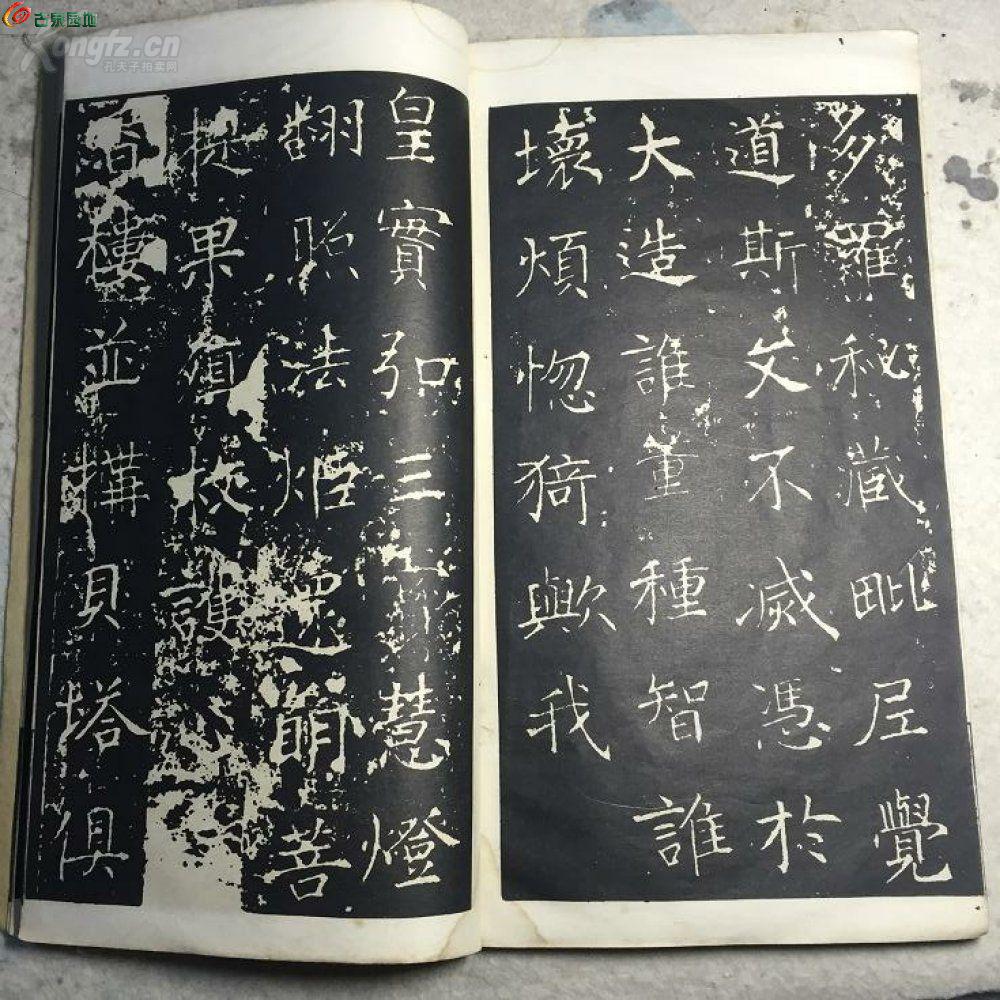 古泉园地
Kongfz.cn
孔夫子拍卖网
多羅秘藏毗尼覺
道斯文不滅憑於
大造誰重種智誰
壞煩惚猗歟我
皇實弘三慧燈
翻照法炬還明菩
提果護
香樓並搆貝塔俱